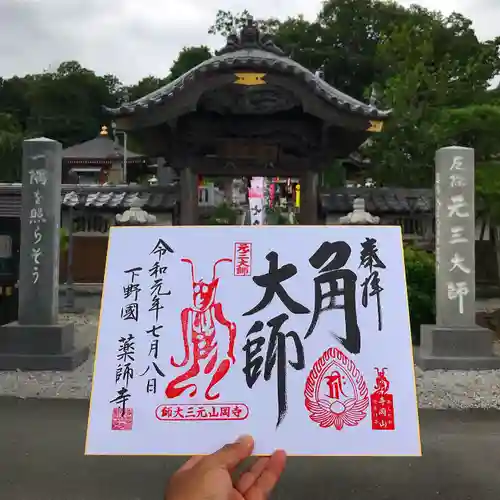 一隅を照らそう
厄除 元三大師
奉拝
角
大師
令和元年七月八日
下野國
薬師寺
元三大師
寺岡山元三大師
寺岡山